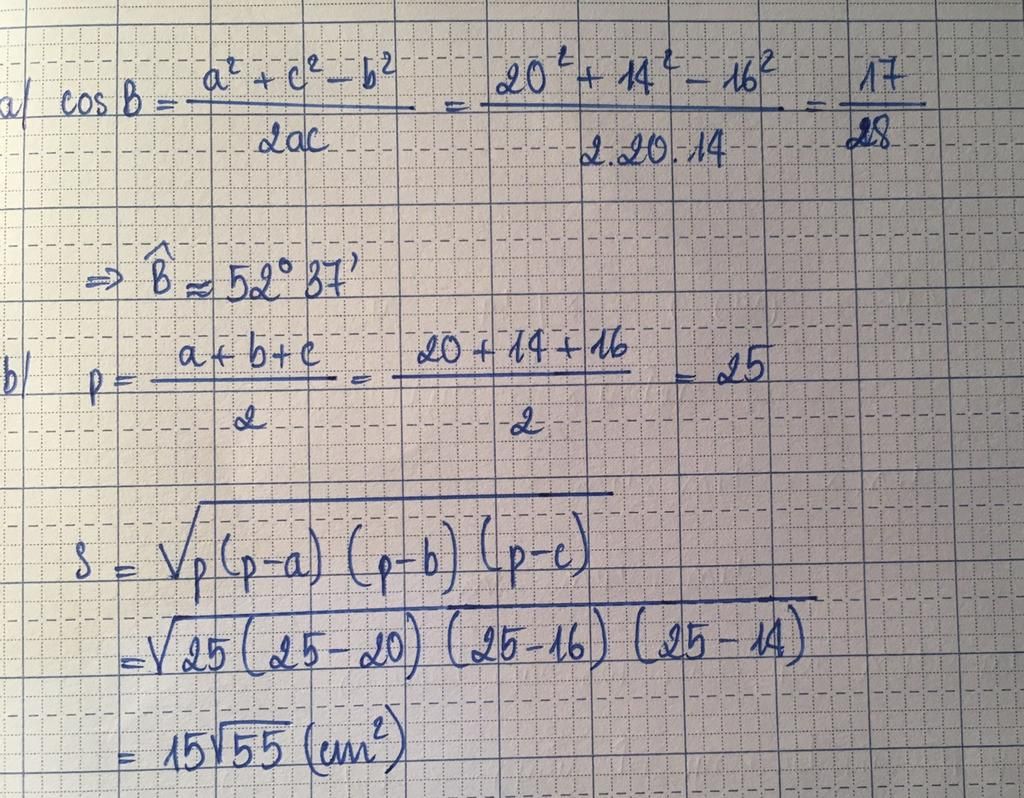 a/ cos B = (a² + c² - b²)/(2ac) = (20² + 14² - 16²)/(2.20.14) = 17/28
⇒ B̂ ≈ 52° 37'
b/ p = (a + b + c)/2 = (20 + 14 + 16)/2 = 25
S = √(p(p-a)(p-b)(p-c))
= √(25(25-20)(25-16)(25-14))
= 15√55 (cm²)